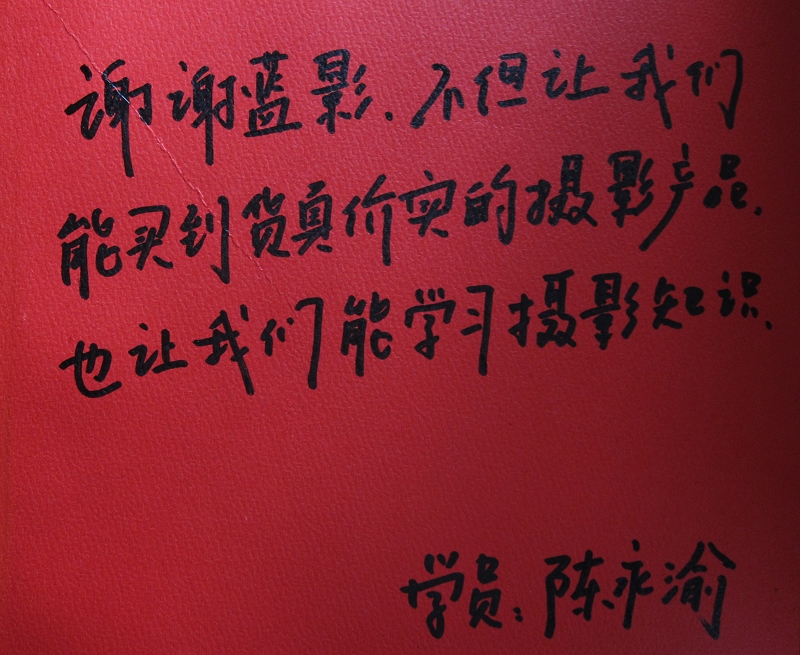 谢谢蓝影、不但让我们
能买到货真价实的摄影产品、
也让我们能学习摄影知识、
学员：陈永渝